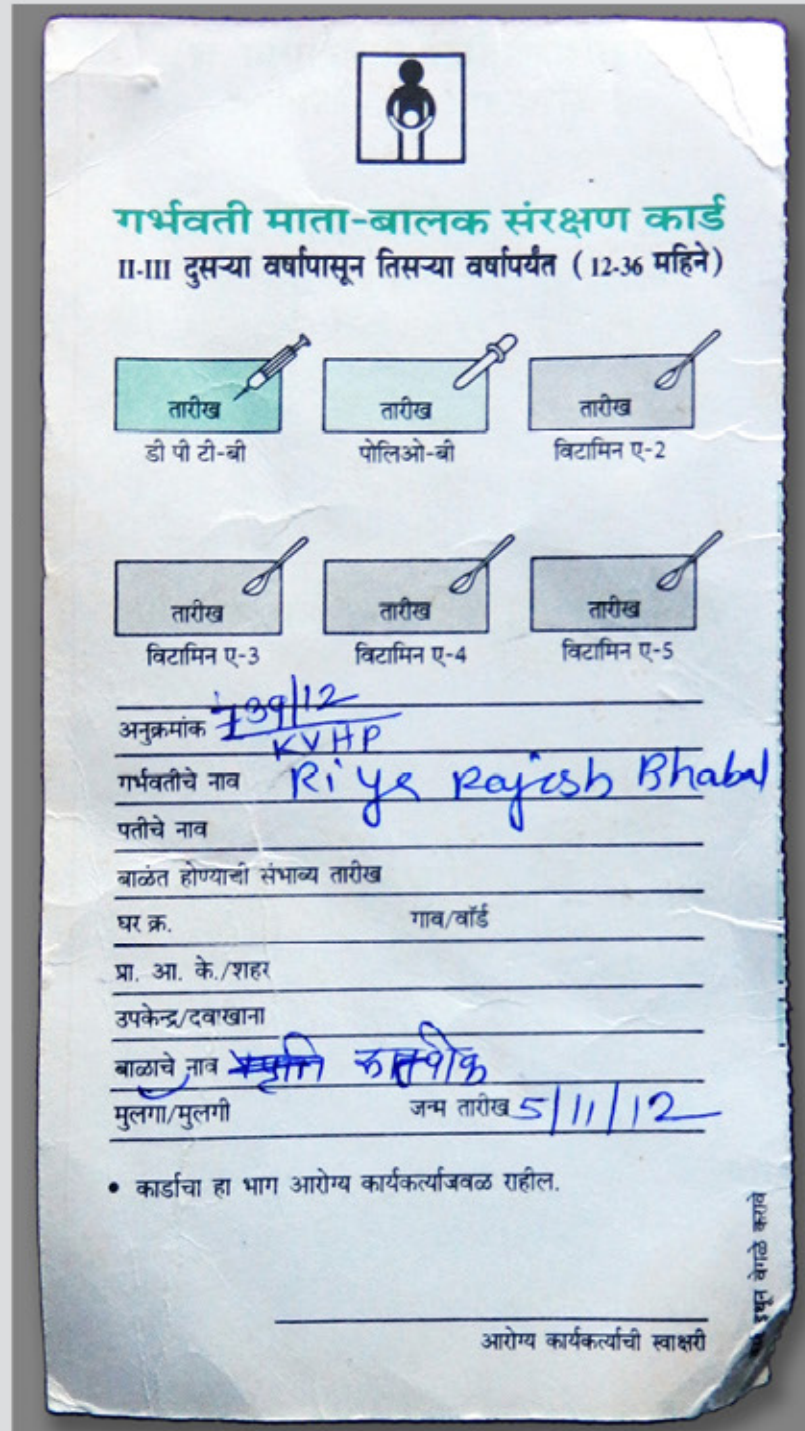 गर्भवती माता-बालक संरक्षण कार्ड
II-III दुसऱ्या वर्षापासून तिसऱ्या वर्षापर्यंत ( 12-36 महिने )
तारीख तारीख तारीख
डी पी टी-बी पोलिओ-बी विटामिन ए-2
तारीख तारीख तारीख
विटामिन ए-3 विटामिन ए-4 विटामिन ए-5
अनुक्रमांक 739/12
KVHP
गर्भवतीचे नाव Riya Rajesh Bhabal
पतीचे नाव
बाळंत होण्याची संभाव्य तारीख
घर क्र. गाव/वॉर्ड
प्रा. आ. के./शहर
उपकेन्द्र/दवाखाना
बाळाचे नाव
मुलगा/मुलगी जन्म तारीख 5/11/12
• कार्डाचा हा भाग आरोग्य कार्यकर्त्याजवळ राहील.
आरोग्य कार्यकर्त्याची स्वाक्षरी
इथून वेगळे करावे